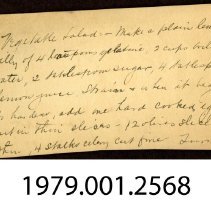 Vegetable Salad:- Make a plain lemon
jelly of 4 teaspoons gelatine, 2 cups boiling
water, 2 tablespoons sugar, 4 tablesp
lemon juice. Strain & when it begins
to harden, add one hard cooked egg
cut in thin slices - 12 olives sliced
thin, 4 stalks celery cut fine.
1979.001.2568